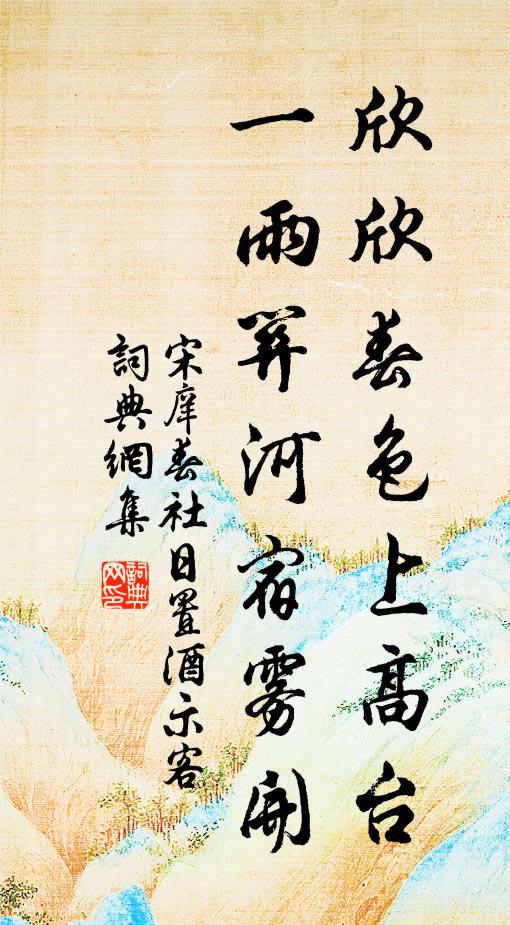 欣欣春色上高台
一雨笄河宿雾開
宋庠春社日置酒示客
詞典網集
詞典
网印